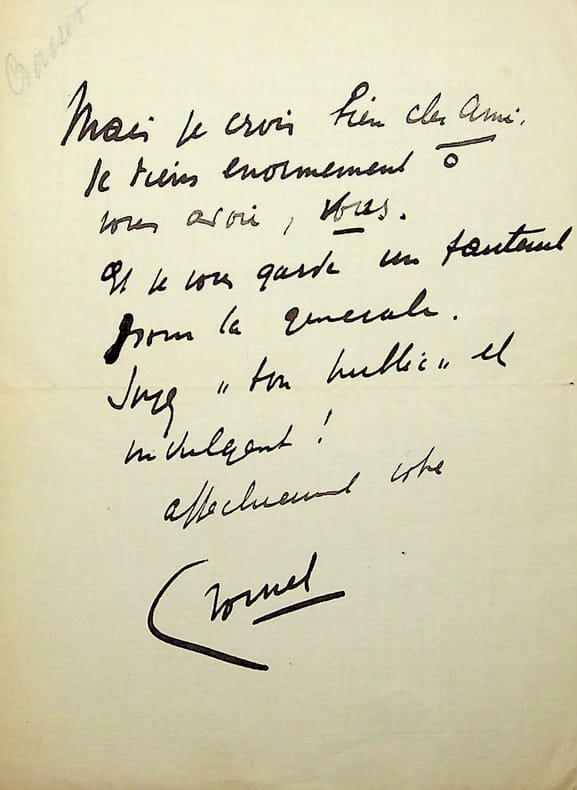 Mais je crois bien cher Ami.
Je tiens enormement à
vous avoir, vous.
Et je vous garde un fauteuil
pour la generale.
Soyez "bon public" et
indulgent !
affectueusement votre